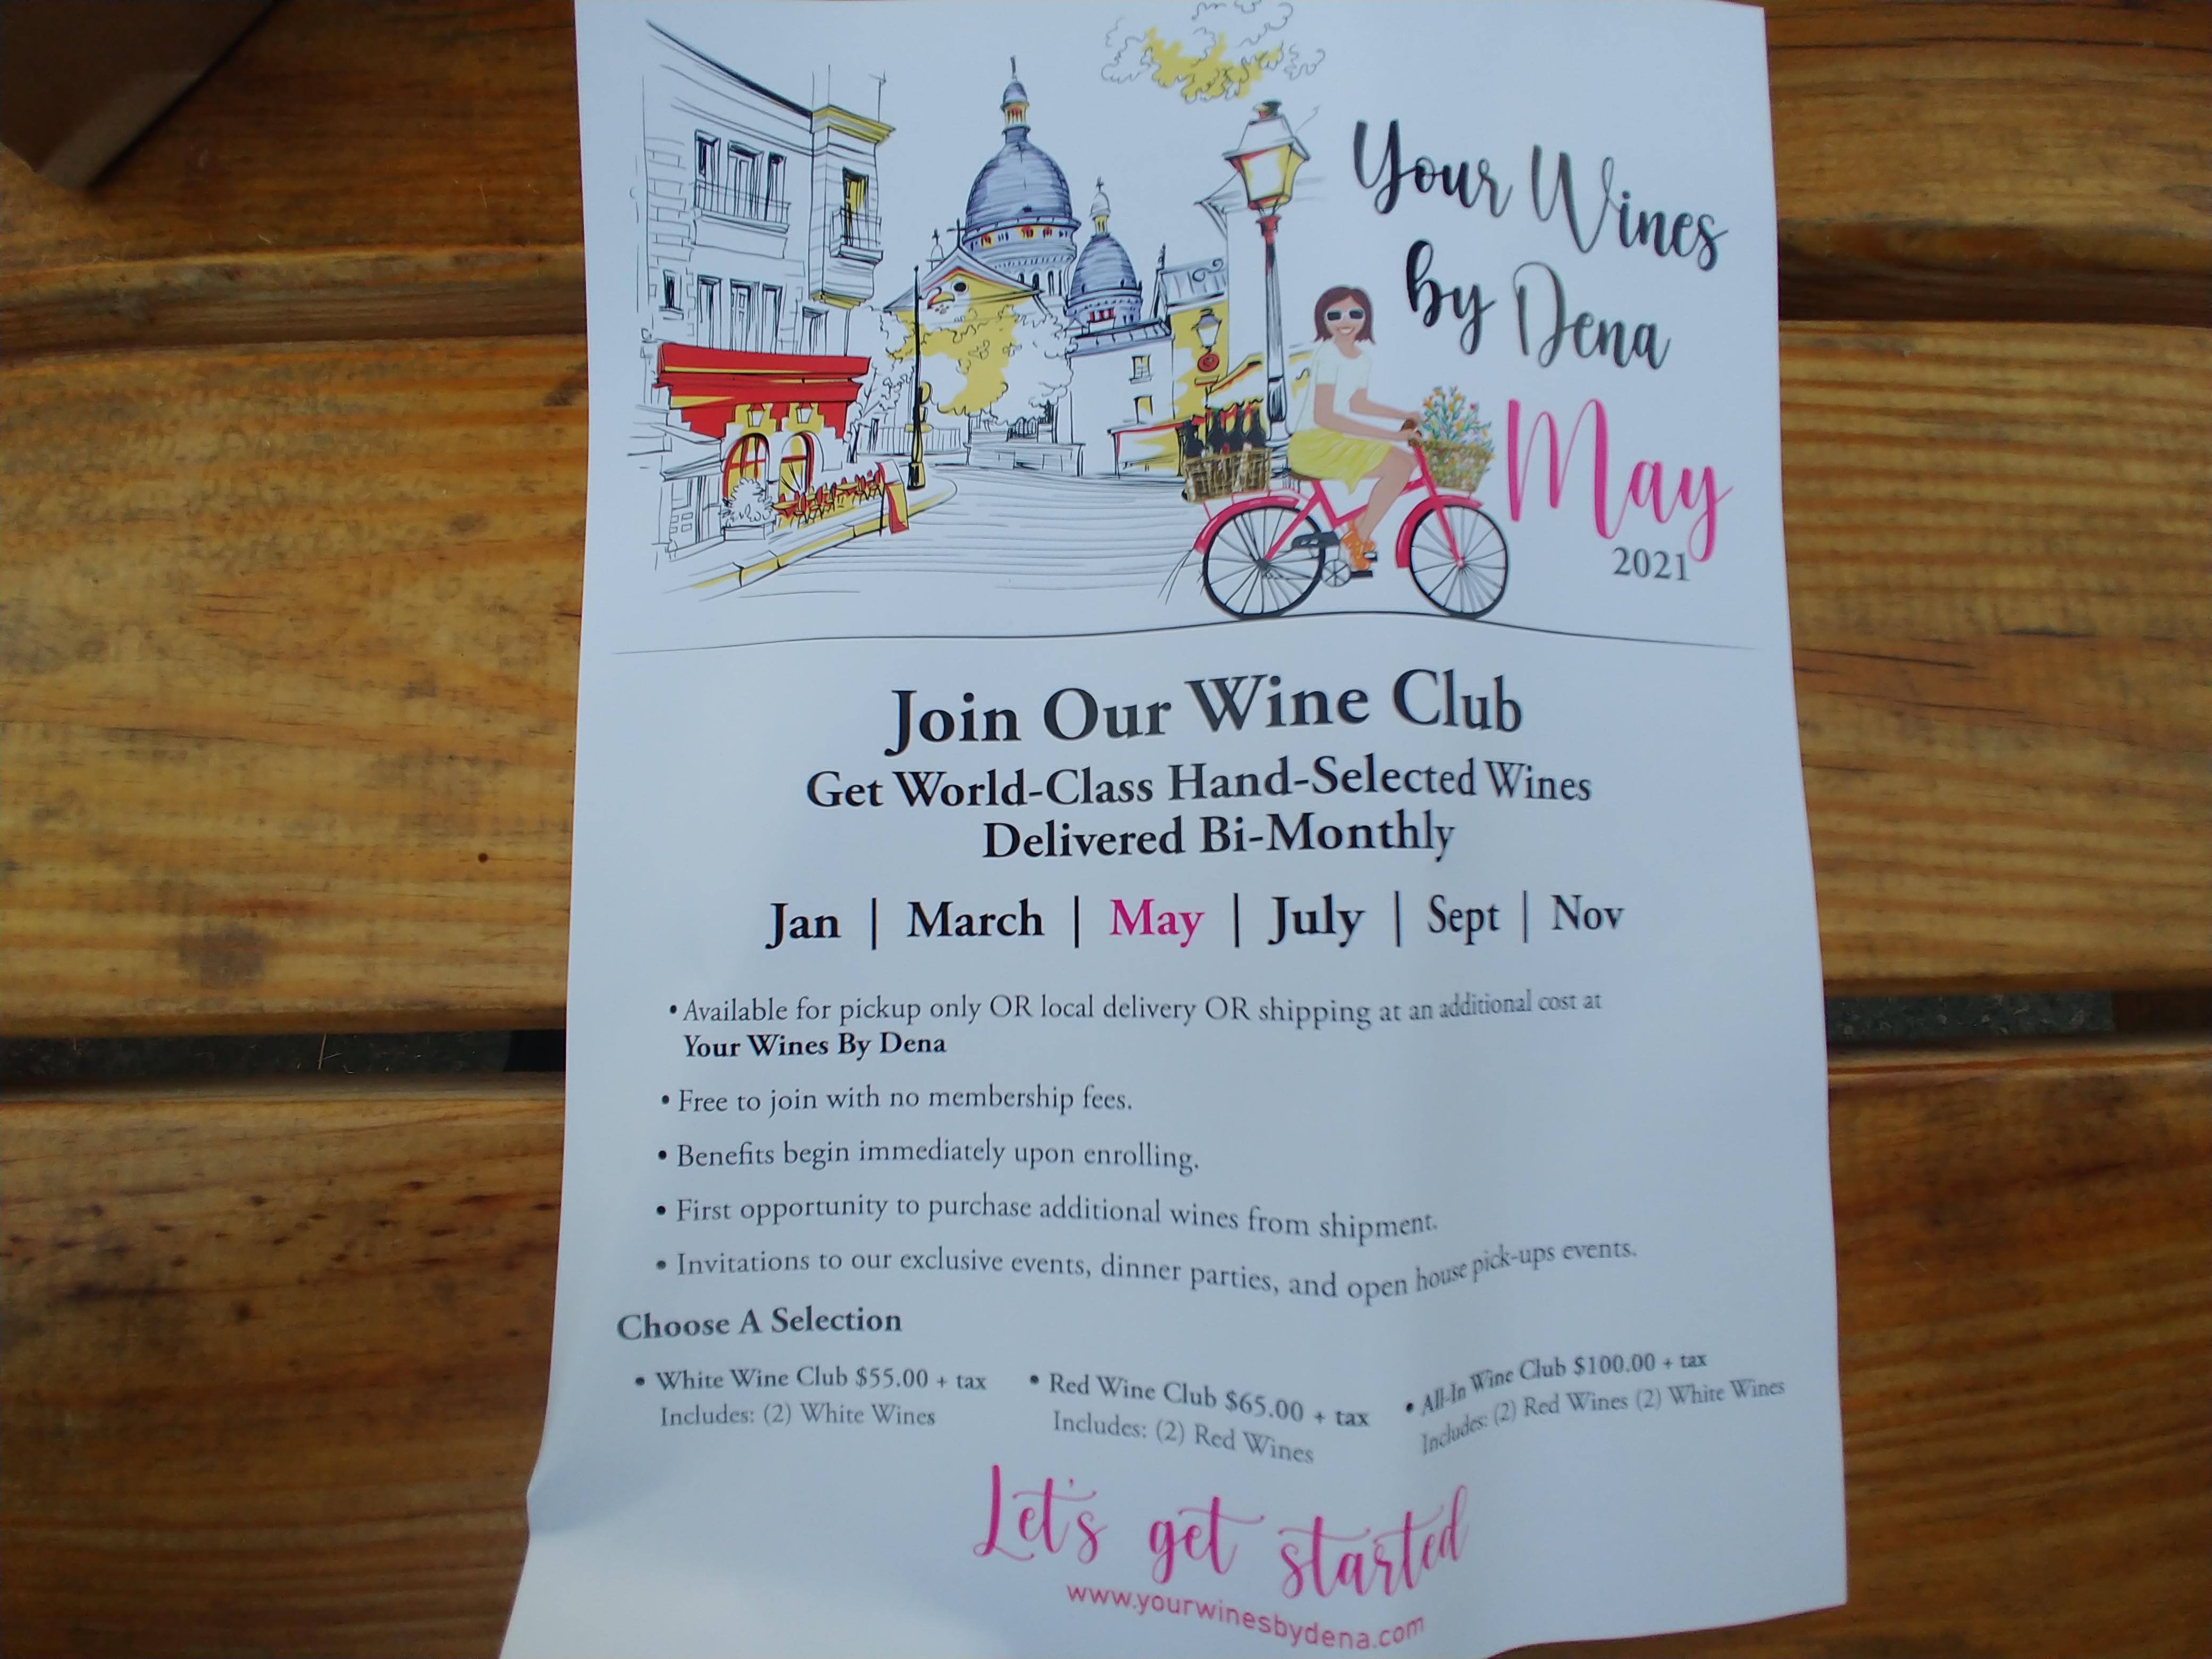 Your Wines
by Dena
May
2021
Join Our Wine Club
Get World-Class Hand-Selected Wines
Delivered Bi-Monthly
Jan | March | May | July | Sept | Nov
• Available for pickup only OR local delivery OR shipping at an additional cost at
Your Wines By Dena
• Free to join with no membership fees.
• Benefits begin immediately upon enrolling.
• First opportunity to purchase additional wines from shipment.
• Invitations to our exclusive events, dinner parties, and open house pick-ups events.
Choose A Selection
• White Wine Club $55.00 + tax
Includes: (2) White Wines
• Red Wine Club $65.00 + tax
Includes: (2) Red Wines
• All-In Wine Club $100.00 + tax
Includes: (2) Red Wines (2) White Wines
Let's get started
www.yourwinesbydena.com